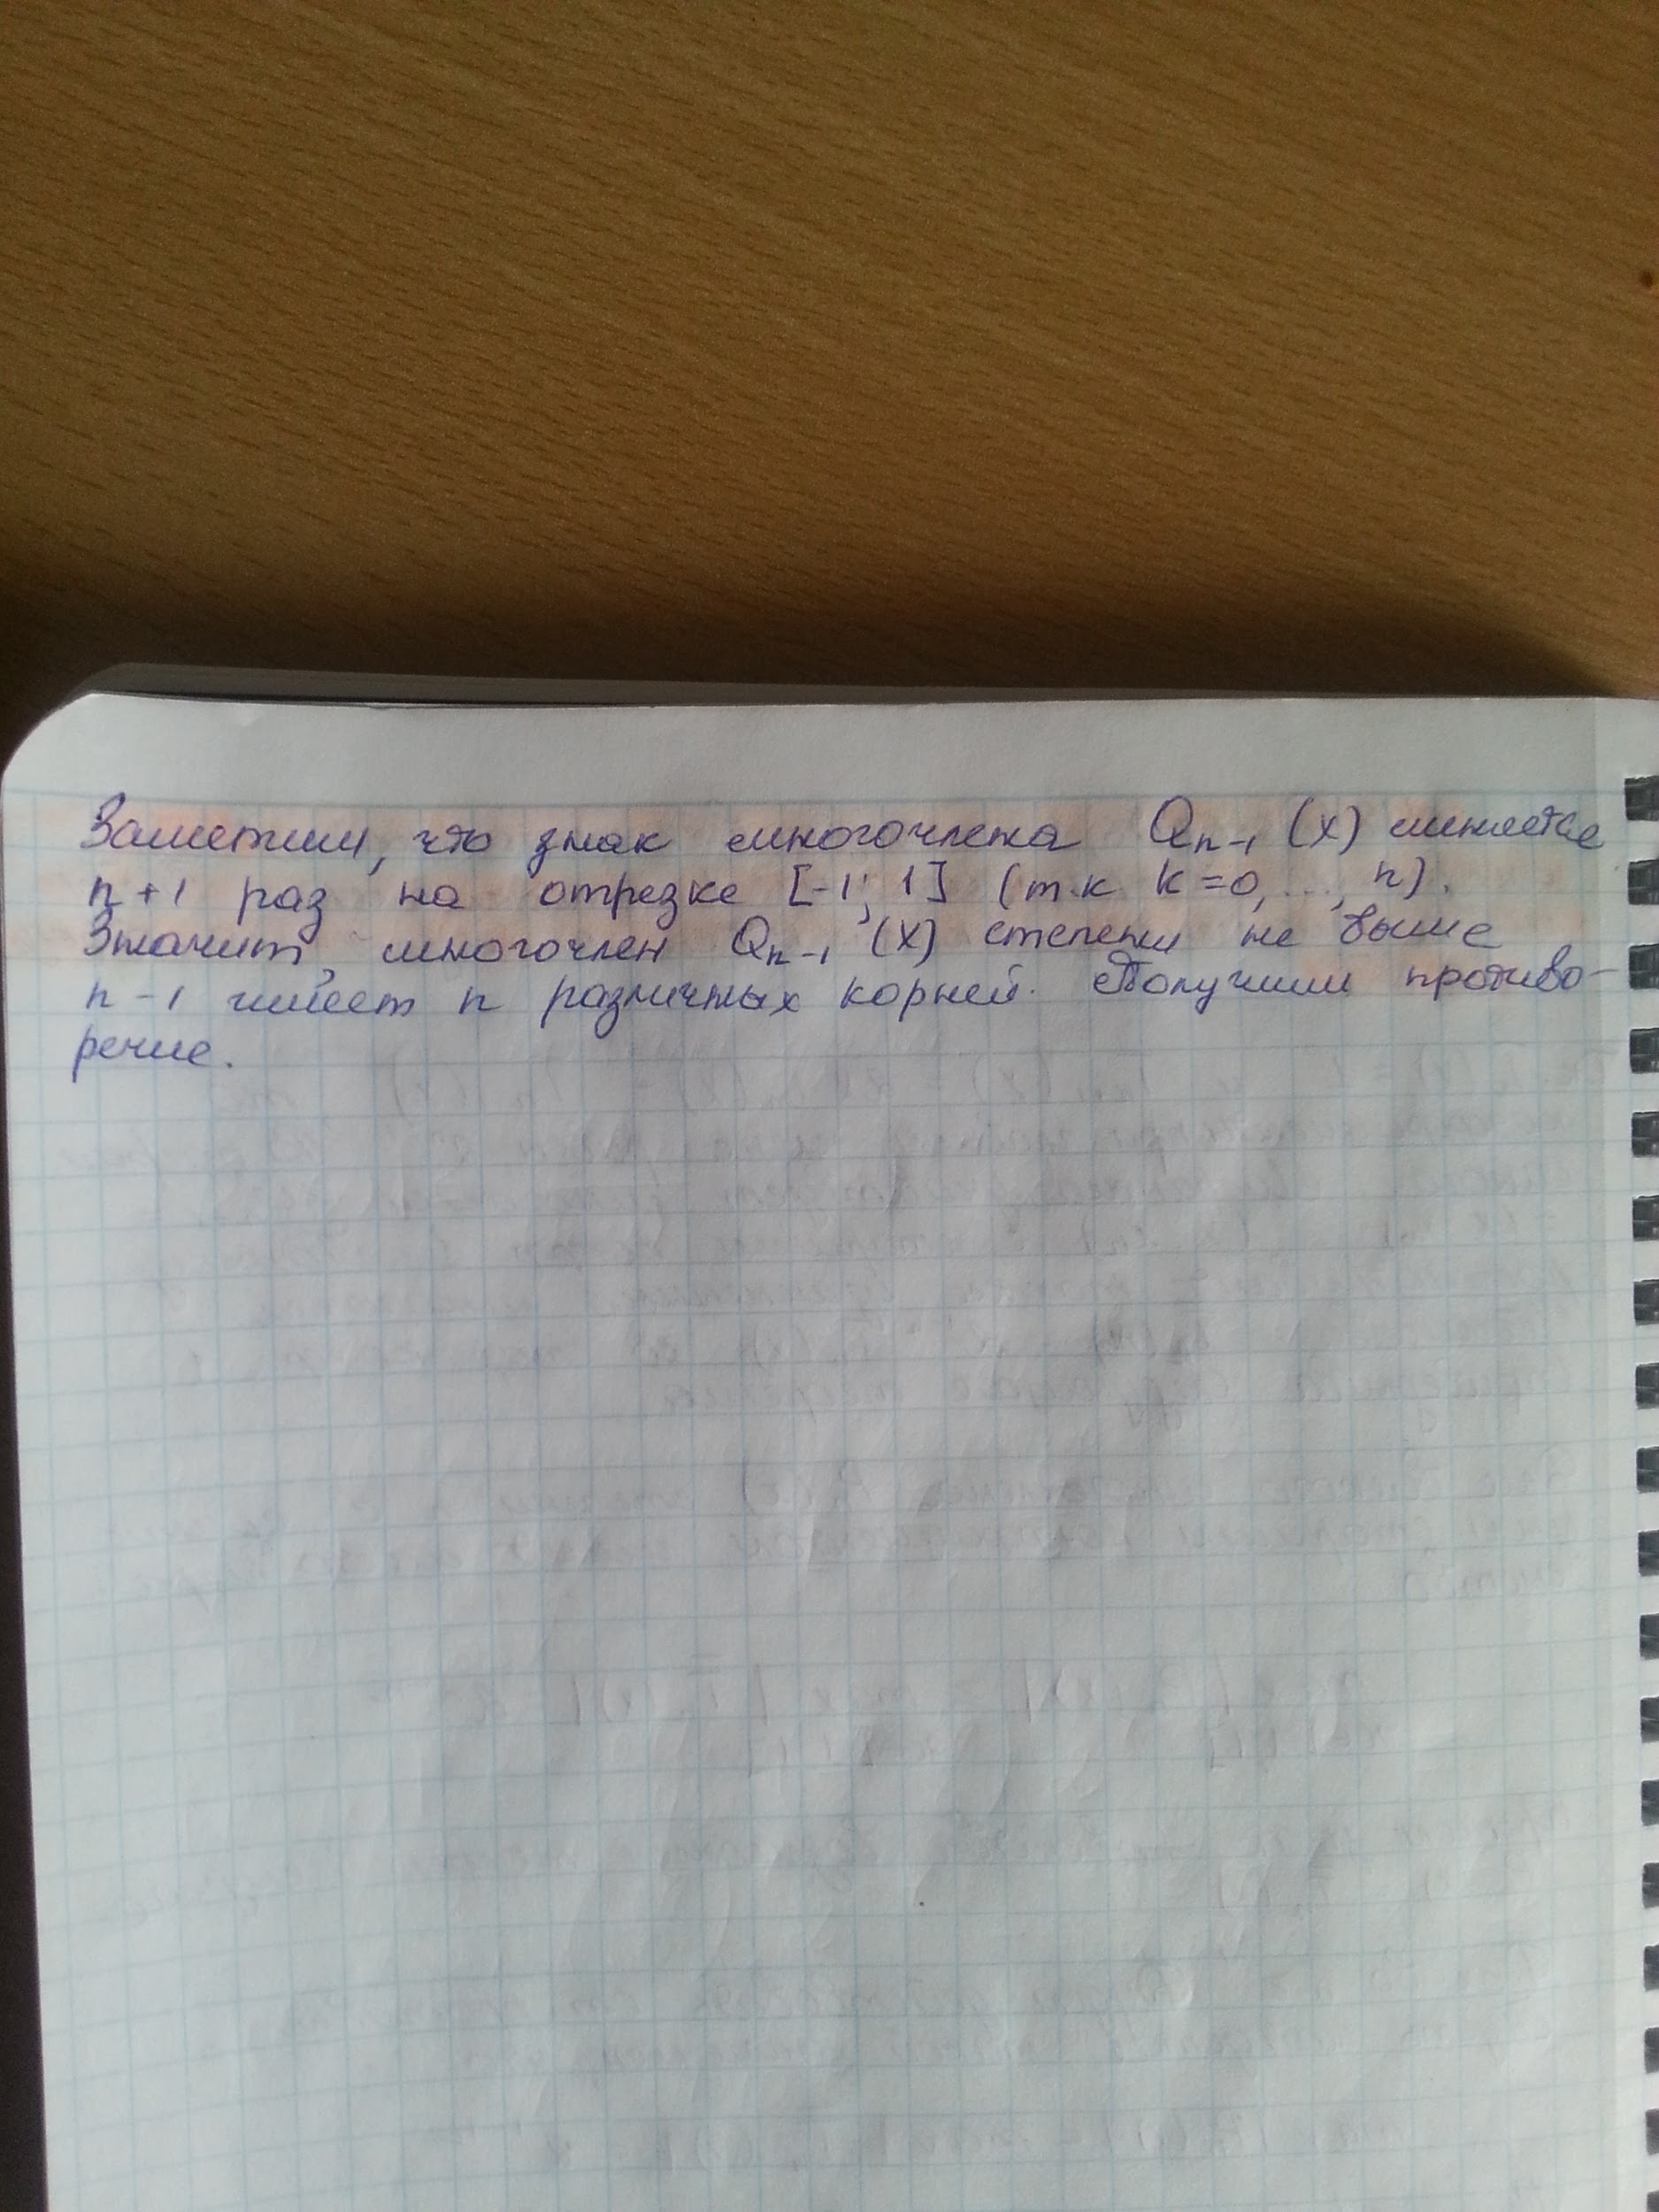 Заметим, что знак многочлена Qn-1 (x) меняется
n+1 раз на отрезке [-1; 1] (т.к k=0,..., n).
Значит, многочлен Qn-1 (x) степени не выше
n-1 имеет n различных корней. Получили противо-
речие.